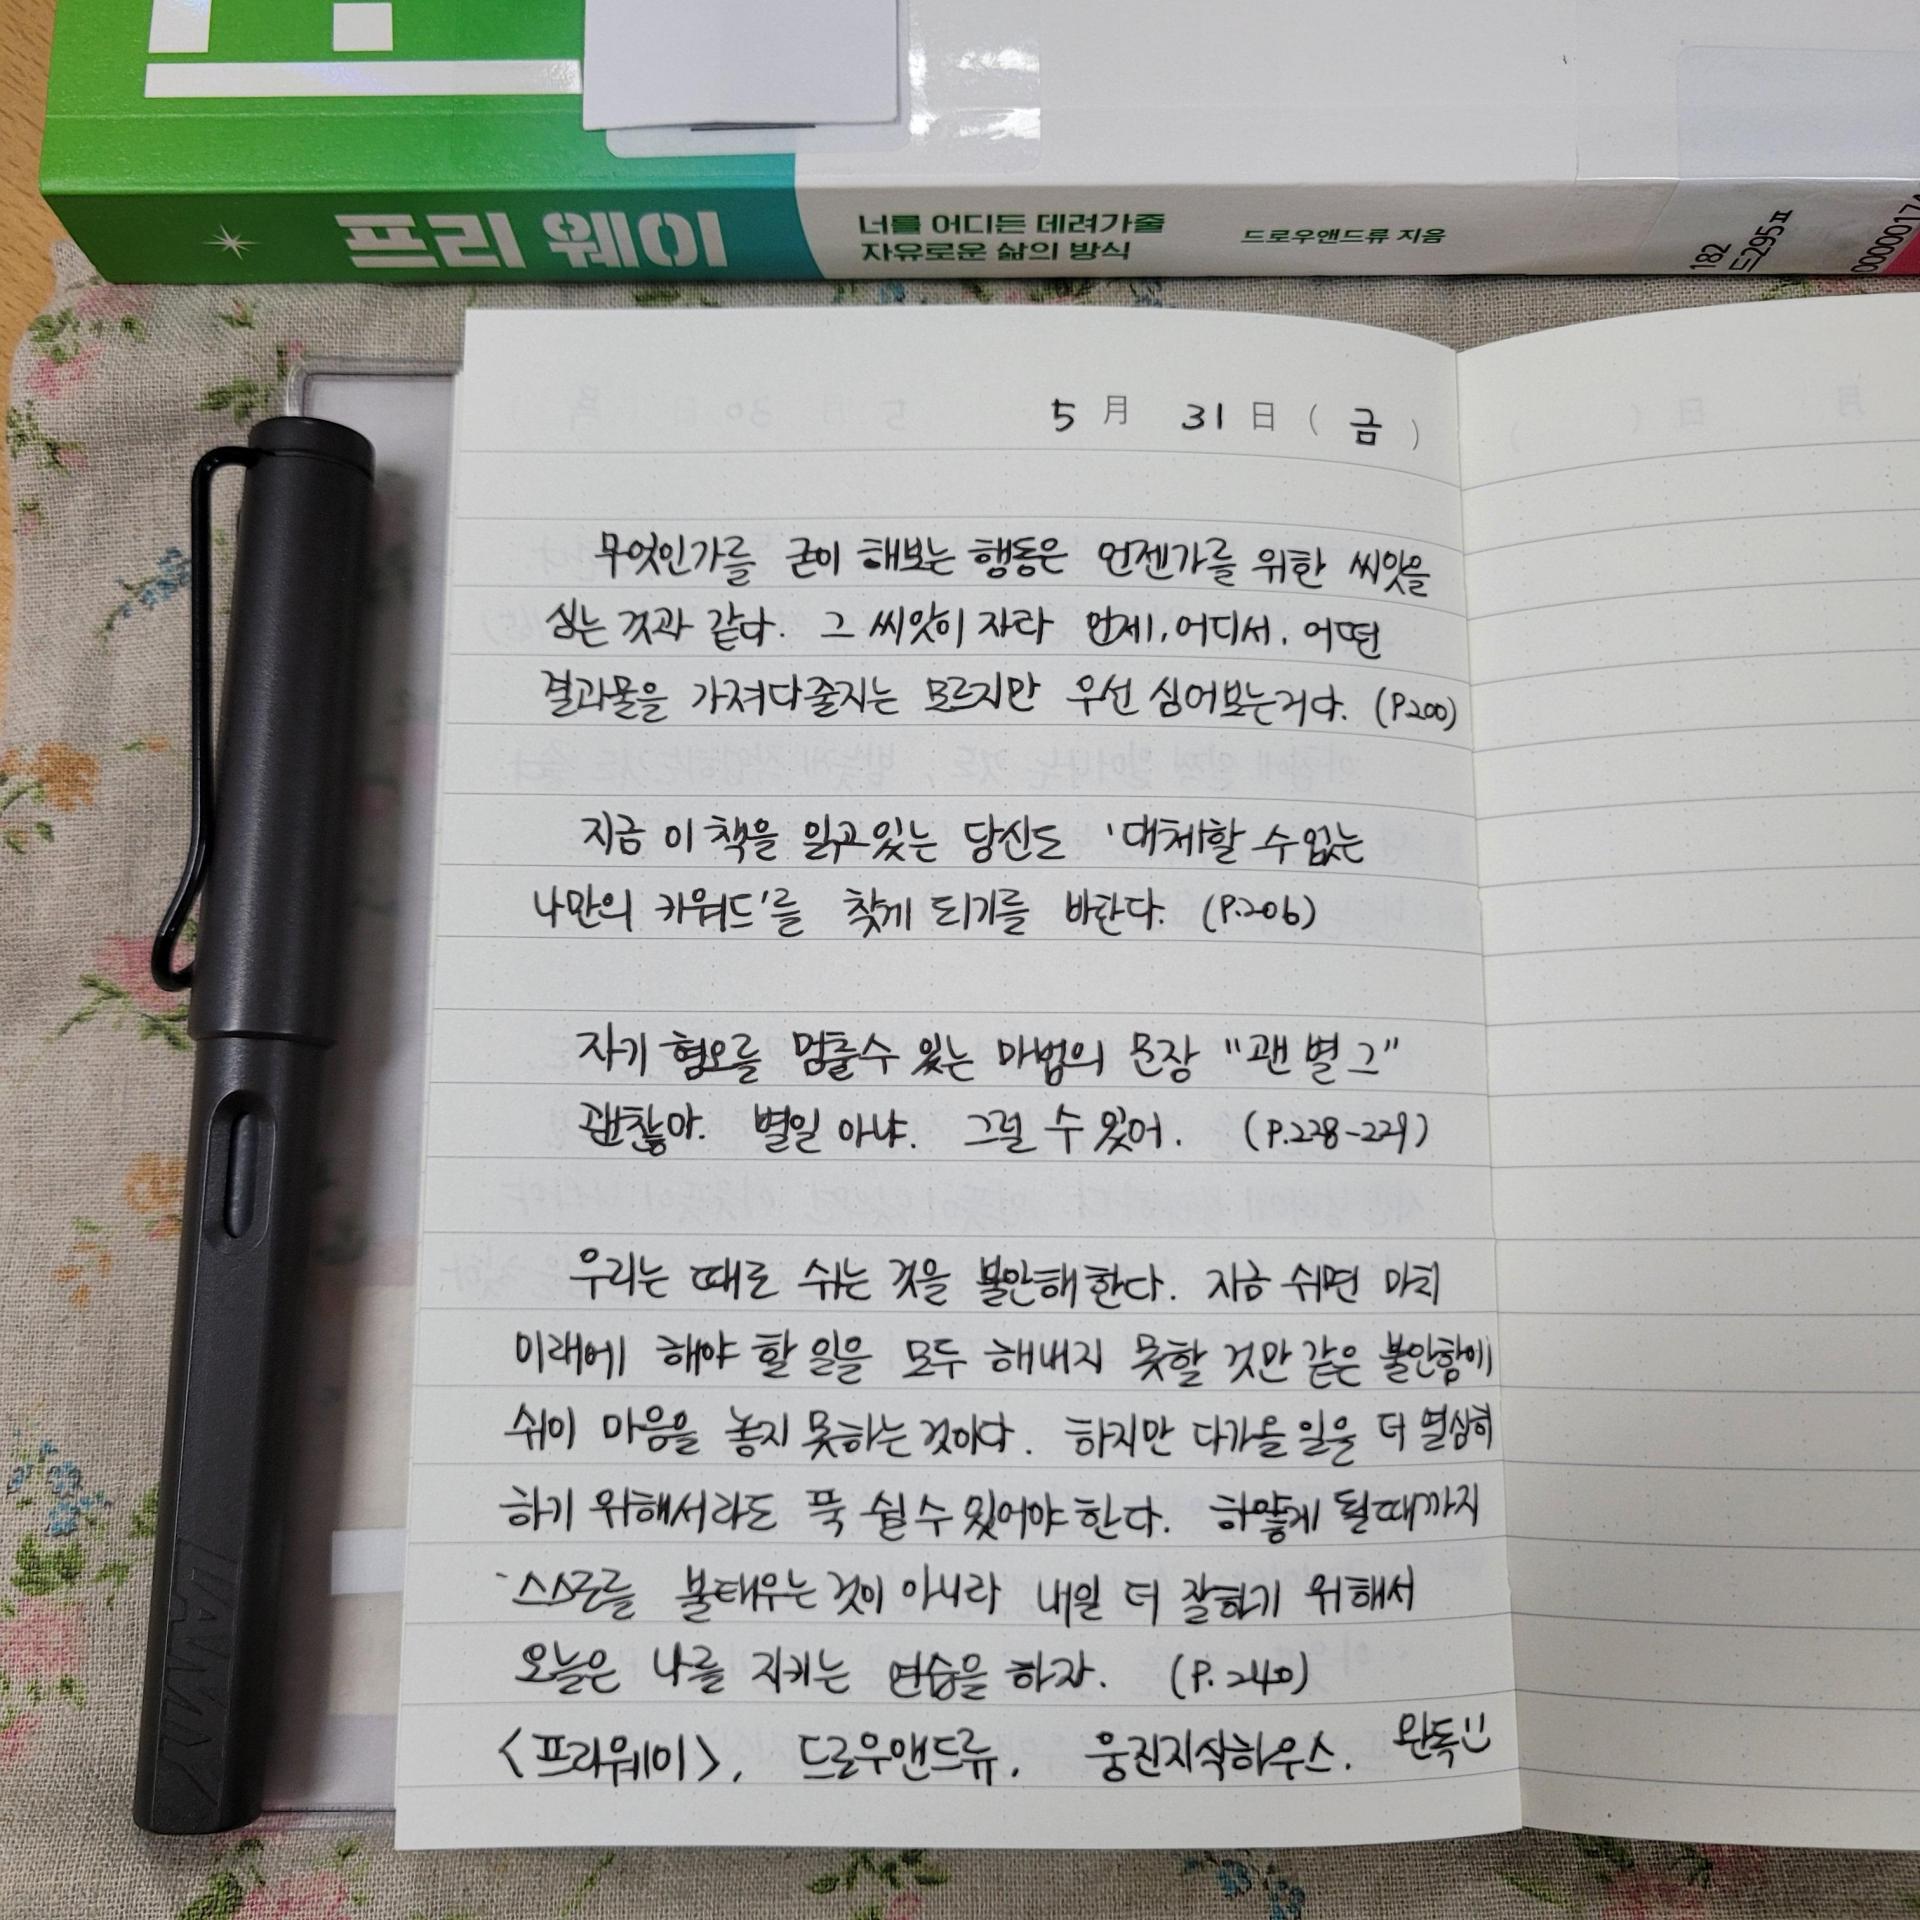 프리 웨이
너를 어디든 데려가줄
자유로운 삶의 방식
드로우앤드류 지음
182
드295ㅍ
5 月 31 日 ( 금 )
무엇인가를 굳이 해보는 행동은 언젠가를 위한 씨앗을
심는 것과 같다. 그 씨앗이 자라 언제, 어디서, 어떤
결과물을 가져다줄지는 모르지만 우선 심어보는거다. (P.200)
지금 이 책을 읽고있는 당신도 '대체할 수 없는
나만의 키워드'를 찾게 되기를 바란다. (P.206)
자기 혐오를 멈출수 있는 마법의 문장 "괜 별 그"
괜찮아. 별일 아냐. 그럴 수 있어. (P.228-229)
우리는 때로 쉬는 것을 불안해 한다. 지금 쉬면 마치
미래에 해야 할 일을 모두 해내지 못할 것만 같은 불안함에
쉬이 마음을 놓지 못하는 것이다. 하지만 다가올 일을 더 열심히
하기 위해서라도 푹 쉴 수 있어야 한다. 하얗게 될때까지
스스로를 불태우는 것이 아니라 내일 더 잘하기 위해서
오늘은 나를 지키는 연습을 하자. (P. 240)
<프리웨이>, 드로우앤드류, 웅진지식하우스. 완독
LAMY